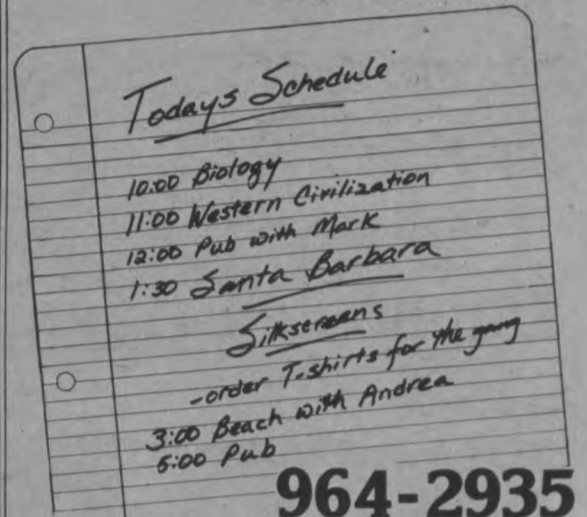 Todays Schedule
10:00 Biology
11:00 Western Civilization
12:00 Pub with Mark
1:30 Santa Barbara
Silkscreens
-order T-shirts for the gang
3:00 Beach with Andrea
5:00 Pub
964-2935